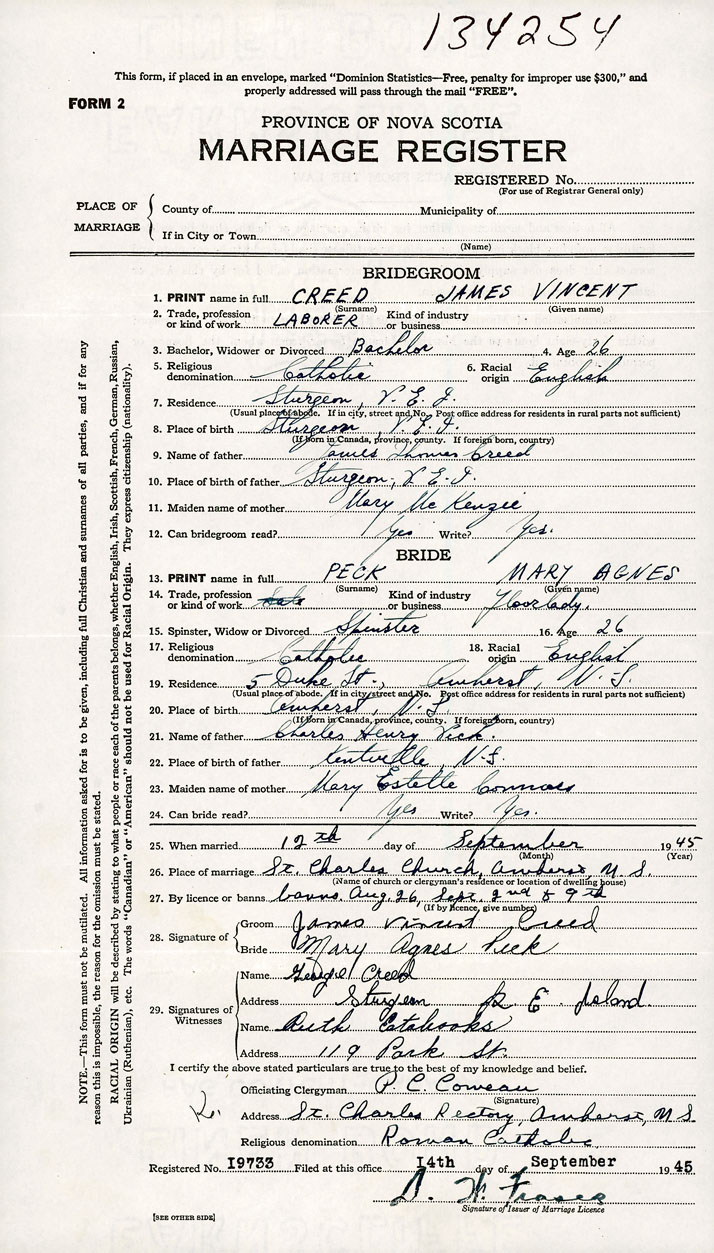 134254
This form, if placed in an envelope, marked "Dominion Statistics—Free, penalty for improper use $300," and
properly addressed will pass through the mail "FREE".
FORM 2
PROVINCE OF NOVA SCOTIA
MARRIAGE REGISTER
REGISTERED No.
(For use of Registrar General only)
PLACE OF MARRIAGE
County of Municipality of
If in City or Town
(Name)
BRIDEGROOM
1. PRINT name in full CREED JAMES VINCENT
(Surname) (Given name)
2. Trade, profession or kind of work LABORER Kind of industry or business
3. Bachelor, Widower or Divorced Bachelor 4. Age 26
5. Religious denomination Catholic 6. Racial origin English
7. Residence Sturgeon, P.E.I.
(Usual place of abode. If in city, street and No. Post office address for residents in rural parts not sufficient)
8. Place of birth Sturgeon, P.E.I.
(If born in Canada, province, county. If foreign born, country)
9. Name of father James Thomas Creed
10. Place of birth of father Sturgeon, P.E.I.
11. Maiden name of mother Mary McKenzie
12. Can bridegroom read? Yes Write? Yes.
BRIDE
13. PRINT name in full PECK MARY AGNES
(Surname) (Given name)
14. Trade, profession or kind of work Kind of industry or business Floorlady.
15. Spinster, Widow or Divorced Spinster 16. Age 26
17. Religious denomination Catholic 18. Racial origin English
19. Residence 5 Duke St., Amherst, N.S.
(Usual place of abode. If in city, street and No. Post office address for residents in rural parts not sufficient)
20. Place of birth Amherst, N.S.
(If born in Canada, province, county. If foreign born, country)
21. Name of father Charles Henry Peck.
22. Place of birth of father Kentville, N.S.
23. Maiden name of mother Mary Estelle
24. Can bride read? Yes Write? Yes.
25. When married 12th day of September 1945
(Month) (Year)
26. Place of marriage St. Charles Church, Amherst, N.S.
(Name of church or clergyman's residence or location of dwelling house)
27. By licence or banns banns Aug. 26, Sept. 2nd & 9th
(If by licence, give number)
28. Signature of
Groom James Vincent Creed
Bride Mary Agnes Peck
29. Signatures of Witnesses
Name George Creed
Address Sturgeon P. E. Island.
Name Ruth Estabrooks
Address 119 Park St.
I certify the above stated particulars are true to the best of my knowledge and belief.
Officiating Clergyman P. C. Comeau
(Signature)
Address St. Charles Rectory, Amherst, N.S.
Religious denomination Roman Catholic
Registered No. I9733 Filed at this office I4th day of September 1945
Signature of Issuer of Marriage Licence
[SEE OTHER SIDE]
NOTE.—This form must not be mutilated. All information asked for is to be given, including full Christian and surnames of all parties, and if for any
reason this is impossible, the reason for the omission must be stated.
RACIAL ORIGIN will be described by stating to what people or race each of the parents belongs, whether English, Irish, Scottish, French, German, Russian,
Ukrainian (Ruthenian), etc. The words "Canadian" or "American" should not be used for Racial Origin. They express citizenship (nationality).